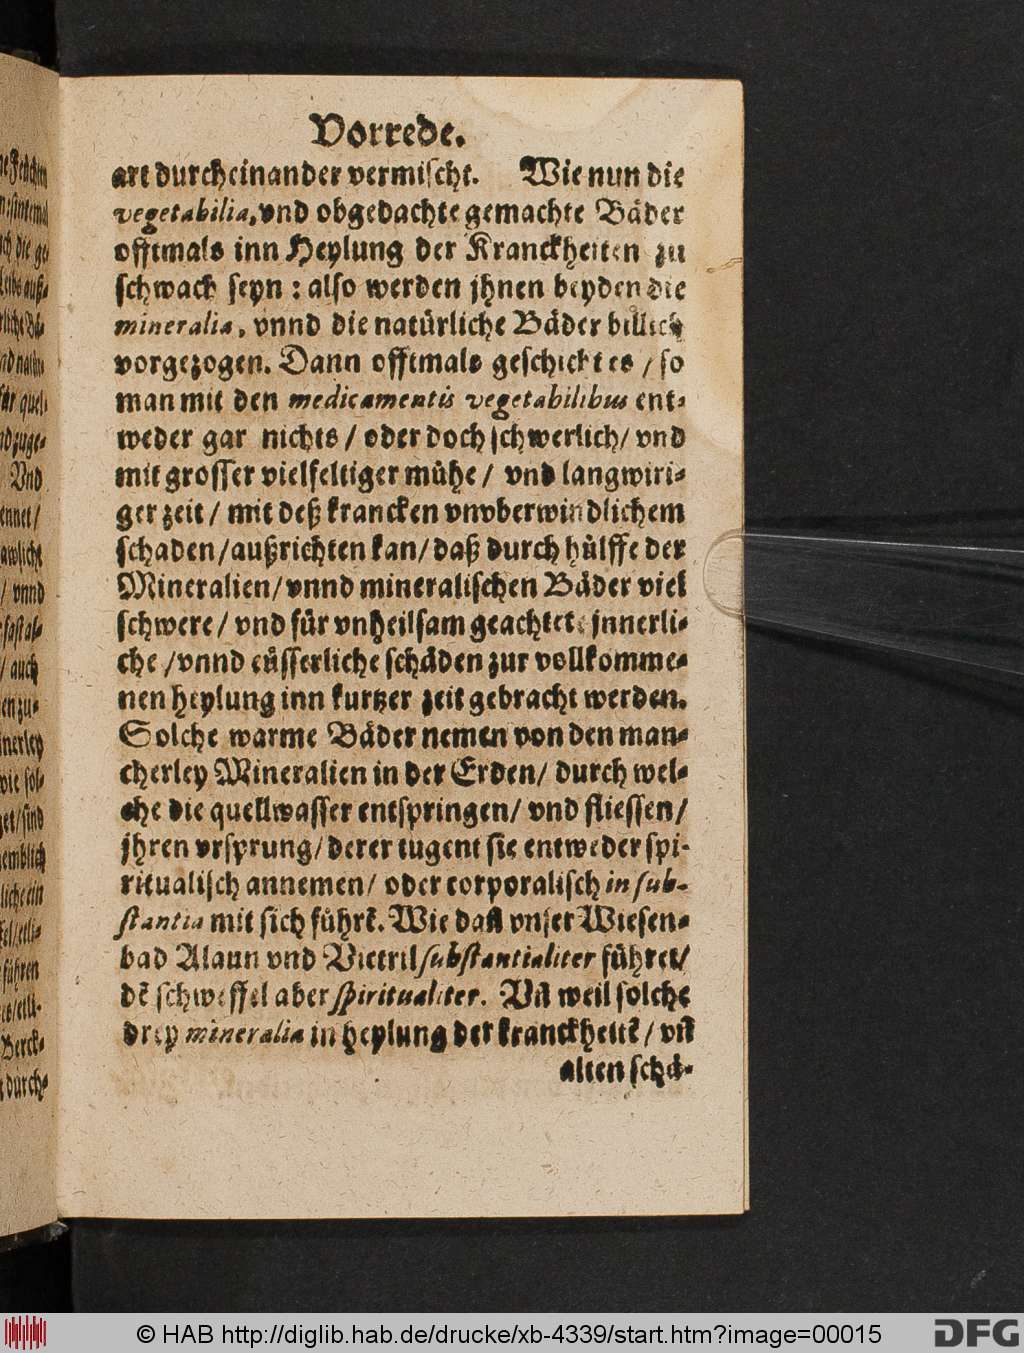 Vorrede.
art durcheinander vermischt. Wie nun die
vegetabilia, vnd obgedachte gemachte Bäder
offtmals inn Heylung der Kranckheiten zu
schwach seyn : also werden jhnen beyden die
mineralia, vnnd die natürliche Bäder billich
vorgezogen. Dann offtmals geschicht es / so
man mit den medicamentis vegetabilibus ent-
weder gar nichts / oder doch schwerlich / vnd
mit grosser vielfeltiger mühe / vnd langwiri-
ger zeit / mit deß krancken vnvberwindlichem
schaden / außrichten kan / daß durch hülffe der
Mineralien / vnnd mineralischen Bäder viel
schwere / vnd für vnheilsam geachtete jnnerli-
che / vnnd eüsserliche schäden zur vollkomme-
nen heylung inn kurtzer zeit gebracht werden.
Solche warme Bäder nemen von den man-
cherley Mineralien in der Erden / durch wel-
che die quellwasser entspringen / vnd fliessen /
jhren vrsprung / derer tugent sie entweder spi-
ritualisch annemen / oder corporalisch in sub-
stantia mit sich führē. Wie dañ vnser Wiesen-
bad Alaun vnd Victril substantialiter führet /
dē schweffel aber spiritualiter. Vñ weil solche
drey mineralia in heylung der kranckheitē / vñ
alten schä-
© HAB http://diglib.hab.de/drucke/xb-4339/start.htm?image=00015
DFG